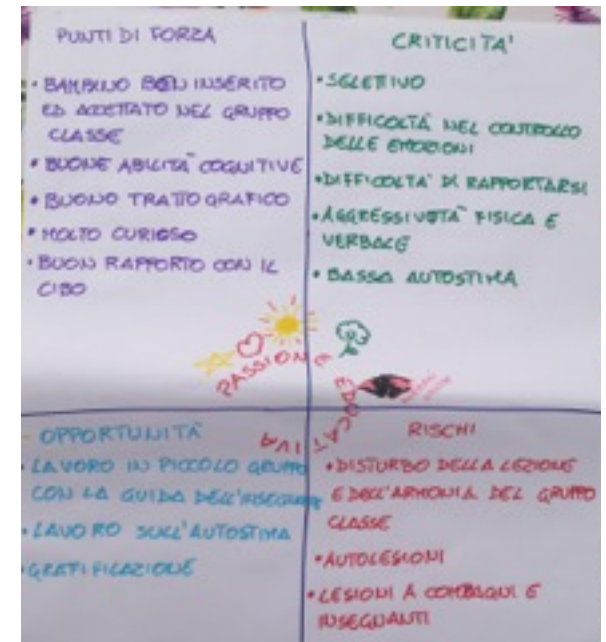 PUNTI DI FORZA
• BAMBINO BEN INSERITO
ED ACCETTATO NEL GRUPPO
CLASSE
• BUONE ABILITÀ COGNITIVE
• BUONO TRATTO GRAFICO
• MOLTO CURIOSO
• BUON RAPPORTO CON IL
CIBO
CRITICITA'
• SELETTIVO
• DIFFICOLTÀ NEL CONTROLLO
DELLE EMOZIONI
• DIFFICOLTA' DI RAPPORTARSI
• AGGRESSIVITÀ FISICA E
VERBALE
• BASSA AUTOSTIMA
PASSIONE EDUCATIVA
OPPORTUNITÀ
• LAVORO IN PICCOLO GRUPPO
CON LA GUIDA DELL'INSEGNANTE
• LAVORO SULL'AUTOSTIMA
• GRATIFICAZIONE
RISCHI
• DISTURBO DELLA LEZIONE
E DELL'ARMONIA DEL GRUPPO
CLASSE
• AUTOLESIONI
• LESIONI A COMPAGNI E
INSEGNANTI